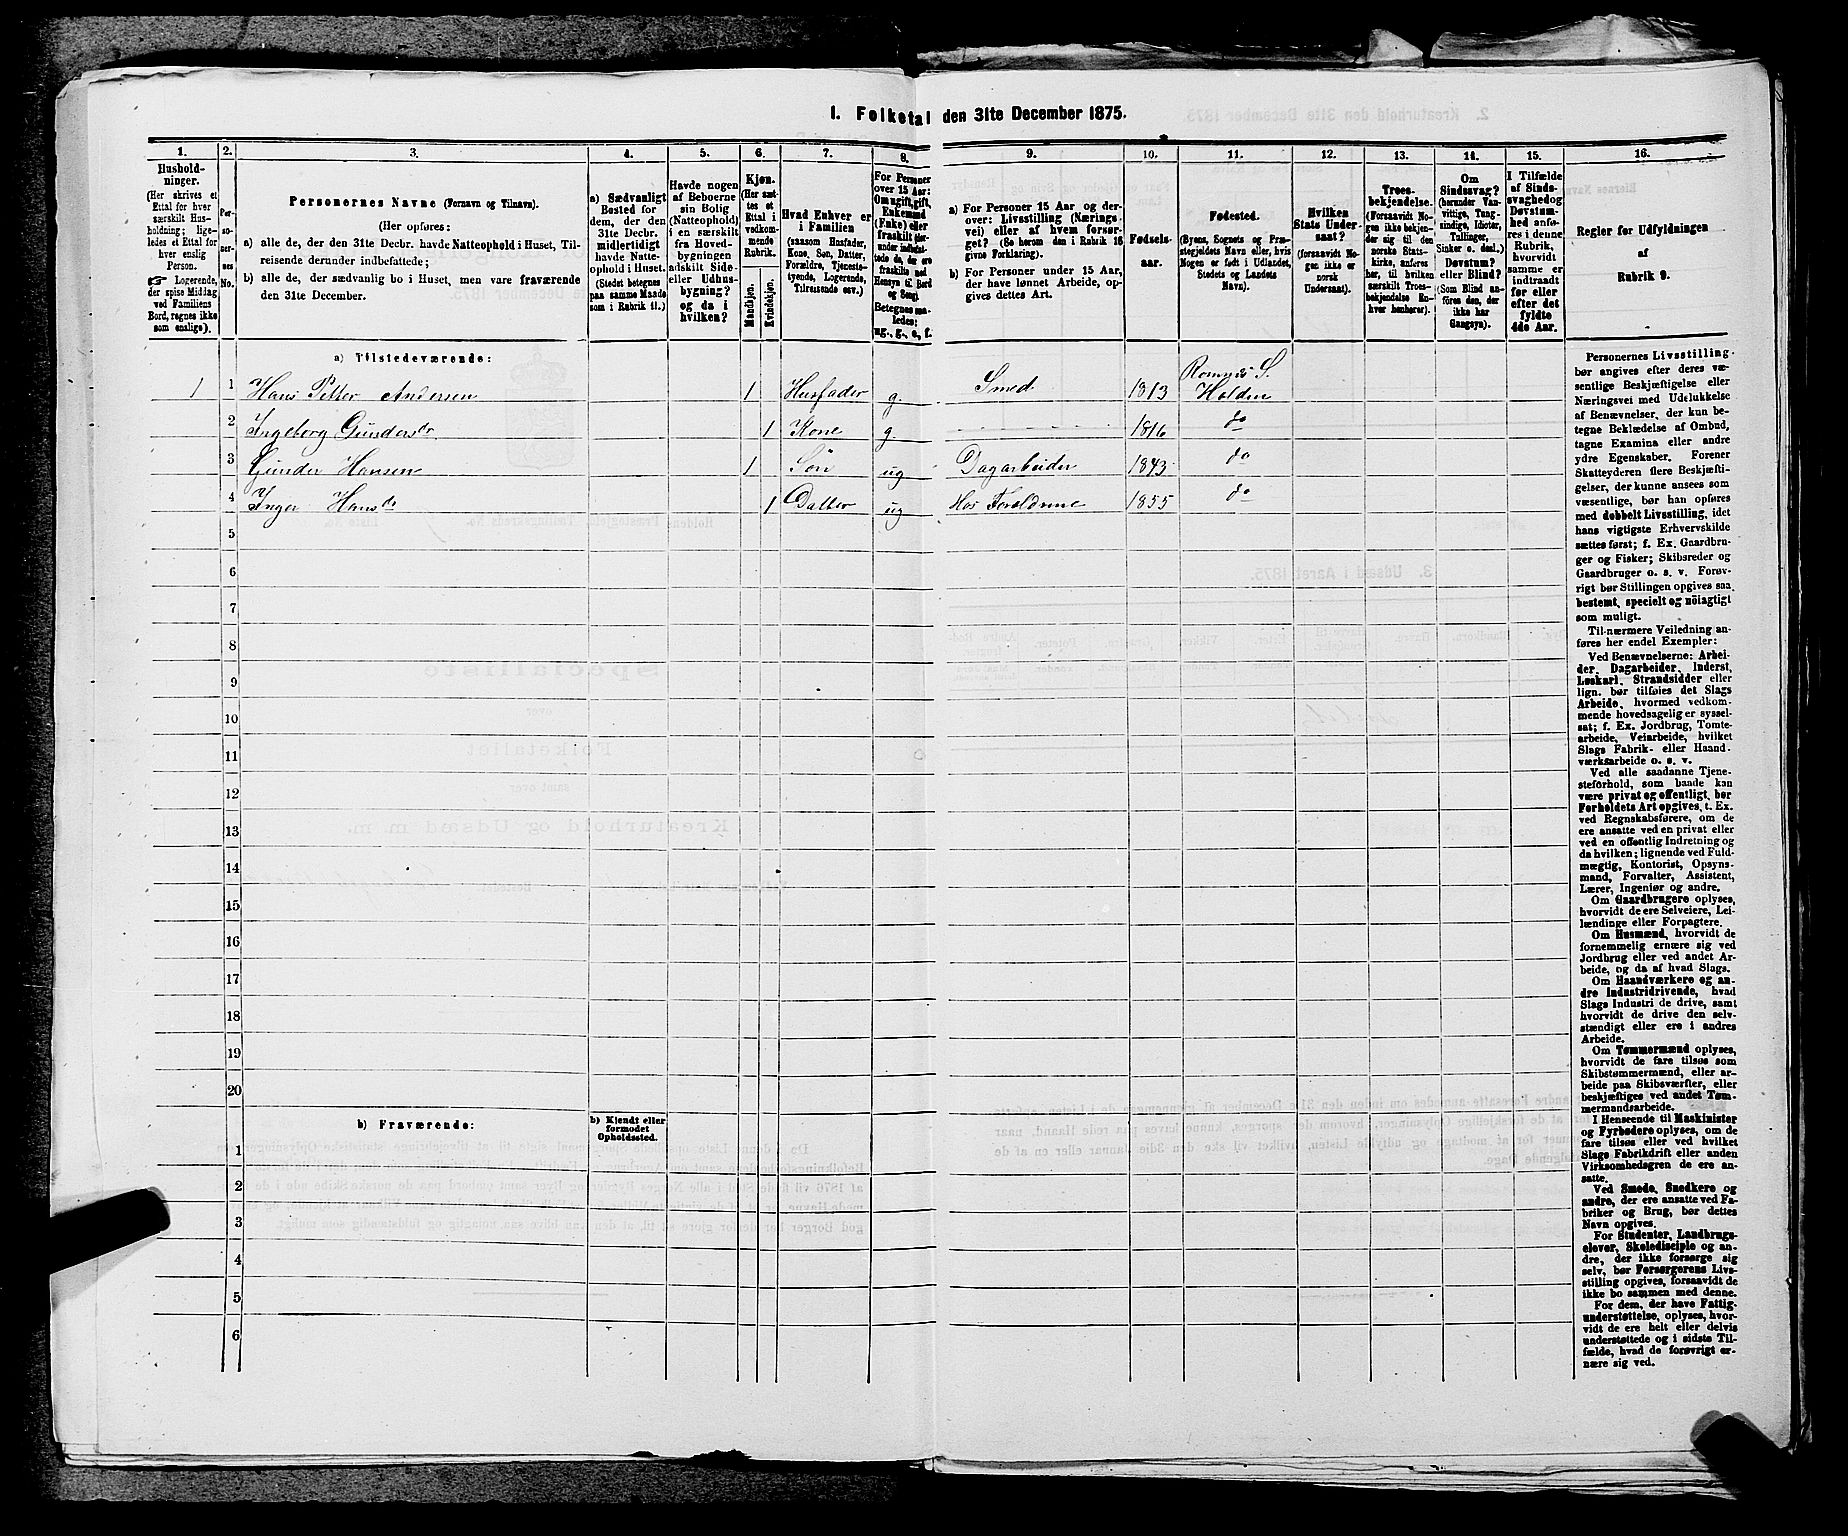 1. Folketal den 31te December 1875.
1.
Hushold-
ninger.
(Her skrives et
Ettal for hver
særskilt Hus-
holdning; lige-
ledes et Ettal for
hver enslig
Person.
☛ Logerende,
der spise Middag
ved Familiens
Bord, regnes ikke
som enslige).
2.
Per-
soner-
nes
No.
3.
Personernes Navne (Fornavn og Tilnavn).
(Her opføres:
a) alle de, der den 31te Decbr. havde Natteophold i Huset, Til-
reisende derunder indbefattede;
b) alle de, der sædvanlig bo i Huset, men vare fraværende
den 31te December.
4.
a) Sædvanligt
Bosted for
dem, der den
31te Decbr.
midlertidigt
havde Natte-
ophold i Huset.
(Stedet betegnes
paa samme Maade
som i Rubrik 11.)
5.
Havde nogen
af Beboerne
sin Bolig
(Natteophold)
i en særskilt
fra Hoved-
bygningen
adskilt Side-
eller Udhus-
bygning?
og da i
hvilken?
6.
Kjøn.
(Her sæt-
tes et
Ettal i
vedkom-
mende
Rubrik.
Mandkjøn.
Kvindekjøn.
7.
Hvad Enhver er
i Familien
(saasom Husfader,
Kone, Søn, Datter,
Forældre, Tjeneste-
tyende, Logerende,
Tilreisende osv.)
8.
For Personer
over 15 Aar:
Om ugift, gift,
Enkemand
(Enke) eller
fraskilt
Betegnes saa-
ledes:
ug., g., e., f.
9.
a) For Personer 15 Aar og der-
over: Livsstilling (Nærings-
vei) eller af hvem forsør-
get? (Se herom den i Rubrik 16
givne Forklaring).
b) For Personer under 15 Aar,
der have lønnet Arbeide, op-
gives dettes Art.
10.
Fødsels-
aar.
11.
Fødested.
(Byens, Sognets og Præ-
stegjeldets Navn eller, hvis
Nogen er født i Udlandet,
Stedets og Landets
Navn).
12.
Hvilken
Stats Under-
saat?
(forsaavidt No-
gen ikke er
norsk
Undersaat).
13.
Troes-
bekjendelse.
(Forsaavidt No-
gen ikke bekjen-
der sig til den
norske Stats-
kirke, anføres
her, til hvilken
særskilt Troes-
bekjendelse En-
hver henhører).
14.
Om
Sindssvag?
(herunder Van-
vittige, Tung-
sindige, Idioter,
Tullinger,
Sinker o. desl.)
Døvstum?
eller Blind?
(Som Blind an-
føres den, der
ikke har
Gangsyn).
15.
I Tilfælde
af Sinds-
svaghed og
Døvstum-
hed anfø-
res i denne
Rubrik,
hvorvidt
samme er
indtraadt
før eller
efter det
fyldte
4de Aar.
16.
Regler for Udfyldningen
af
Rubrik 9.
a) Tilstedeværende:
1 1 Hans Petter Andersen 1 Husfader g. Smed 1813 Romnes S. Holden
2 Ingeborg Gundersdr 1 Kone g. 1816 do
3 Gunder Hansen 1 Søn ug Dagarbeider 1843 do
4 Inger Hansdr 1 Datter ug Hos Forældrene 1855 do
5
6
7
8
9
10
11
12
13
14
15
16
17
18
19
20
b) Fraværende:
b) Kjendt eller
formodet
Opholdssted.
1
2
3
4
5
6
Personernes Livsstilling
bør angives efter deres væ-
sentlige Beskjæftigelse eller
Næringsvei med Udelukkelse
af Benævnelser, der kun be-
tegne Beklædelse af Ombud,
tagne Examina eller andre
ydre Egenskaber. Forener
Skatteyderen flere Beskjæfti-
gelser, der kunne ansees som
væsentlige, bør han opføres
med dobbelt Livsstilling, idet
hans vigtigste Erhvervskilde
sættes først; f. Ex. Gaardbru-
ger og Fisker; Skibsreder og
Gaardbruger o. s. v. Forøv-
rigt bør Stillingen opgives saa
bestemt, specielt og nöiagtigt
som muligt.
Til nærmere Veiledning an-
føres her endel Exempler:
Ved Benævnelserne: Arbei-
der, Dagarbeider, Inderst,
Løskarl, Strandsidder eller
lign. bør tilføies det Slags
Arbeide, hvormed vedkom-
mende hovedsagelig er syssel-
sat; f. Ex. Jordbrug, Tomte-
arbeide, Veiarbeide, hvilket
Slags Fabrik- eller Haand-
værksarbeide o. s. v.
Ved alle saadanne Tjene-
steforhold, som baade kan
være privat og offentligt, bør
Forholdets Art opgives, t. Ex.
ved Regnskabsførere, om de
ere ansatte ved en privat eller
ved en offentlig Indretning og
da hvilken; lignende ved Fuld-
mægtig, Kontorist, Opsyns-
mand, Forvalter, Assistent,
Lærer, Ingeniør og andre.
Om Gaardbrugere oplyses,
hvorvidt de ere Selveiere, Lei-
lændinge eller Forpagtere.
Om Husmænd, hvorvidt de
fornemmelig ernære sig ved
Jordbrug eller ved andet Ar-
beide, og da af hvad Slags.
Om Haandværkere og an-
dre Industridrivende, hvad
Slags Industri de drive, samt
hvorvidt de drive den selv-
stændigt eller ere i andres
Arbeide.
Om Tømmermænd oplyses,
hvorvidt de fare tilsøs som
Skibstømmermænd, eller ar-
beide paa Skibsværfter, eller
beskjæftiges ved andet Tøm-
mermandsarbeide.
I Henseende til Maskinister
og Fyrbødere oplyses, om de
fare tilsøs eller ved hvilket
Slags Fabrikdrift eller anden
Virksomhedsgren de ere an-
satte.
Ved Smede, Snedkere og
andre, der ere ansatte ved Fa-
briker og Brug, bør dettes
Navn opgives.
For Studenter, Landbrugs-
elever, Skoledisciple og an-
dre, der ikke forsørge sig
selv, bør Forsørgerens Livs-
stilling opgives, forsaavidt de
ikke bo sammen med denne.
For dem, der have Fattig-
understøttelse, oplyses, hvor-
vidt de ere helt eller delvis
understøttede og i sidste Til-
fælde, hvad de forøvrigt er-
nære sig ved.